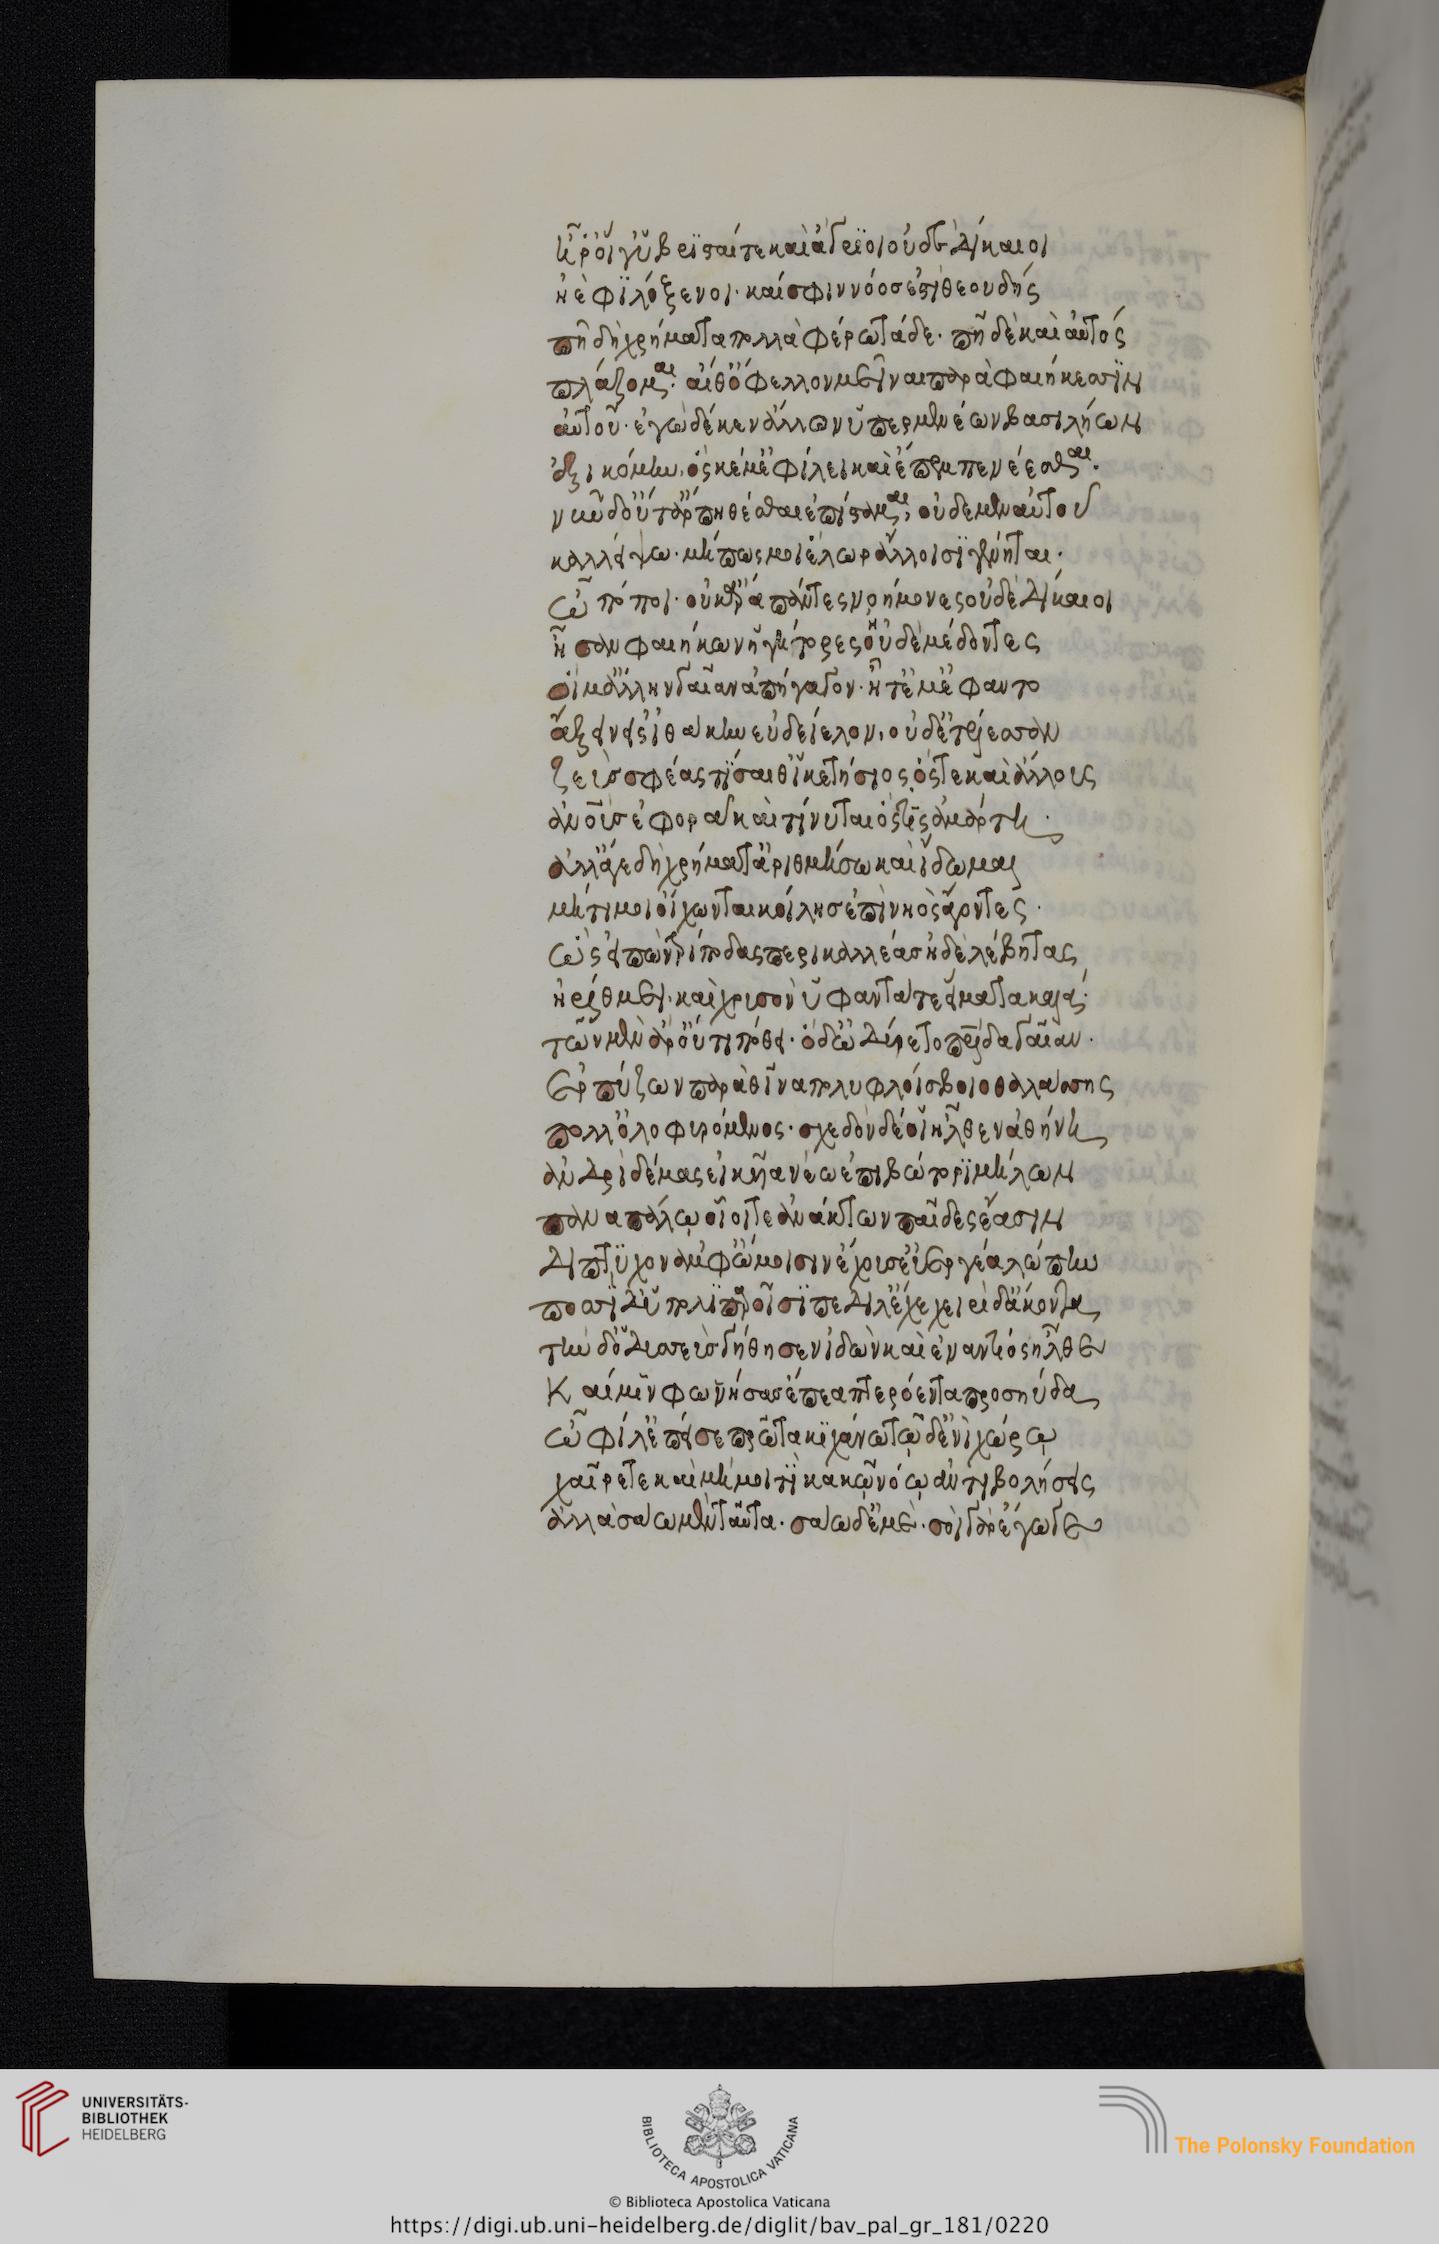 ἦ ῥ' οἵ γ' ὑβρισταί τε καὶ ἄγριοι οὐδὲ δίκαιοι
ἠὲ φιλόξενοι· καί σφιν νόος ἐστὶ θεουδής
πῆ δὴ χρήματα πολλὰ φέρω τάδε· πῆ δὲ καὶ αὐτός
πλάζομαι· αἴθ' ὄφελλον μεῖναι παρὰ φαιήκεσσιν
αὐτοῦ· ἐγὼ δέ κεν ἄλλον ὑπερμενέων βασιλήων
ἐξικόμην, ὅς κέ μ' ἐφίλει καὶ ἔπεμπε νέεσθαι·
νῦν δ' οὔτ' ἄρ πη θέσθαι ἐπίσταμαι, οὐδὲ μὲν αὐτοῦ
καλλείψω· μή πως μοι ἕλωρ ἄλλοισι γένηται·
ὦ πόποι· οὐκ ἄρα πάντες νοήμονες οὐδὲ δίκαιοι
ἦσαν φαιήκων ἡγήτορες ἠδὲ μέδοντες
οἵ μ' ἄλλην γαῖαν ἀπήγαγον· ἦ τέ μ' ἔφαντο
ἄξειν εἰς ἰθάκην εὐδείελον, οὐδ' ἐτέλεσσαν
ζεύς σφέας τίσαιθ' ἱκετήσιος, ὅς τε καὶ ἄλλους
ἀνθρώπους ἐφορᾷ καὶ τίνυται ὅς τις ἁμάρτῃ·
ἀλλ' ἄγε δὴ χρήματ' ἀριθμήσω καὶ ἴδωμαι
μή τί μοι οἴχωνται κοίλης ἐπὶ νηὸς ἄγοντες·
ὣς εἰπὼν τρίποδας περικαλλέας ἠδὲ λέβητας
ἠρίθμει· καὶ χρυσὸν ὑφαντά τε εἵματα καλά·
τῶν μὲν ἄρ' οὔ τι πόθει· ὁ δ' ὠδύρετο πατρίδα γαῖαν·
ἑρπύζων παρὰ θῖνα πολυφλοίσβοιο θαλάσσης
πόλλ' ὀλοφυρόμενος· σχεδὸν δέ οἱ ἦλθεν ἀθήνη
ἀνδρὶ δέμας εἰκυῖα νέῳ ἐπιβώτορι μήλων
παναπάλῳ οἷοί τε ἀνάκτων παῖδες ἔασιν
δίπτυχον ἀμφ' ὤμοισιν ἔχουσ' εὐεργέα λώπην
ποσσὶ δ' ὑπὸ λιπαροῖσι πέδιλ' ἔχε χειρὶ δ' ἄκοντα
τὴν δ' ὀδυσεὺς γήθησεν ἰδὼν καὶ ἐναντίος ἦλθε
Καί μιν φωνήσας ἔπεα πτερόεντα προσηύδα
ὦ φίλ' ἐπεί σε πρῶτα κιχάνω τῷδ' ἐνὶ χώρῳ
χαῖρέ τε καὶ μή μοί τι κακῷ νόῳ ἀντιβολήσεις
ἀλλὰ σάω μὲν ταῦτα· σάω δ' ἐμέ· σοὶ γὰρ ἔγωγε
UNIVERSITÄTS-
BIBLIOTHEK
HEIDELBERG
BIBLIOTECA APOSTOLICA VATICANA
The Polonsky Foundation
© Biblioteca Apostolica Vaticana
https://digi.ub.uni-heidelberg.de/diglit/bav_pal_gr_181/0220